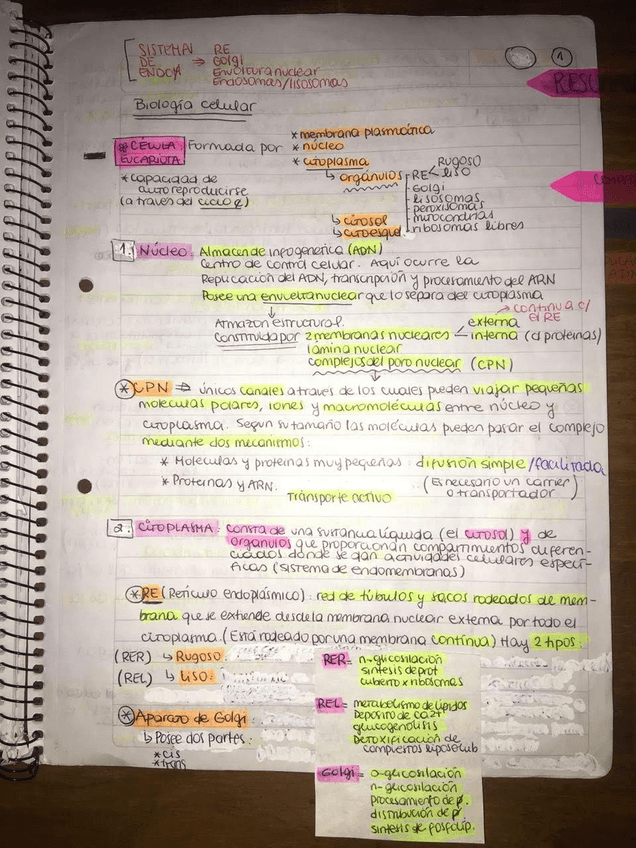 SISTEMA RE
DE ⇒ Golgi
ENDOM Envoltura nuclear
Endosomas/lisosomas
1
RESU
Biología celular
* CÉLULA EUCARIOTA
Formada por
* membrana plasmática
* núcleo
* citoplasma
* capacidad de
autoreproducirse
(a través del ciclo
↳ orgánulos
RE Rugoso
liso
Golgi
lisosomas
peroxisomas
mitocondrias
ribosomas libres
↳ citosol
↳ citoesquel.
1. Núcleo: Almacen de info genetica (ADN)
Centro de control celular. Aquí ocurre la
Replicación del ADN, transcripción y procesamiento del ARN
Posee una envuelta nuclear que lo separa del citoplasma
→ continua c/
el RE
Armazon estructural.
Constituida por 2 membranas nucleares
externa
interna (c/ proteinas)
lámina nuclear
complejos del poro nuclear (CPN)
* CPN ⇒ únicos canales a traves de los cuales pueden viajar pequeñas
moleculas polares, iones y macromoléculas entre núcleo y
citoplasma. Segun su tamaño las moléculas pueden pasar el complejo
mediante dos mecanismos:
* Moleculas y proteinas muy pequeñas: difusión simple/facilitada
* Proteinas y ARN.
Transporte activo
(Es necesario un carrier
o transportador)
2. CITOPLASMA: consta de una sustancia líquida (el citosol) y de
organulos que proporcionan compartimientos diferen-
ciados donde se dan actividades celulares especi-
ficas (sistema de endomembranas)
* RE (Retículo endoplásmico): red de túbulos y sacos rodeados de mem-
brana que se extiende desde la membrana nuclear externa por todo el
citoplasma. (Está rodeado por una membrana continua) Hay 2 tipos:
(RER) ↳ Rugoso:
(REL) ↳ Liso:
* Aparato de Golgi:
↳ Posee dos partes:
* cis
* trans
RER = n-glicosilación
sintesis de prot
cubierto x ribosomas
REL = metabolismo de lípidos
Deposito de Ca2+
glucogenolisis
Detoxificación de
compuestos liposolub
Golgi = o-glicosilación
n-glicosilación
procesamiento de p.
distribución de p.
sintesis de fosfolip.